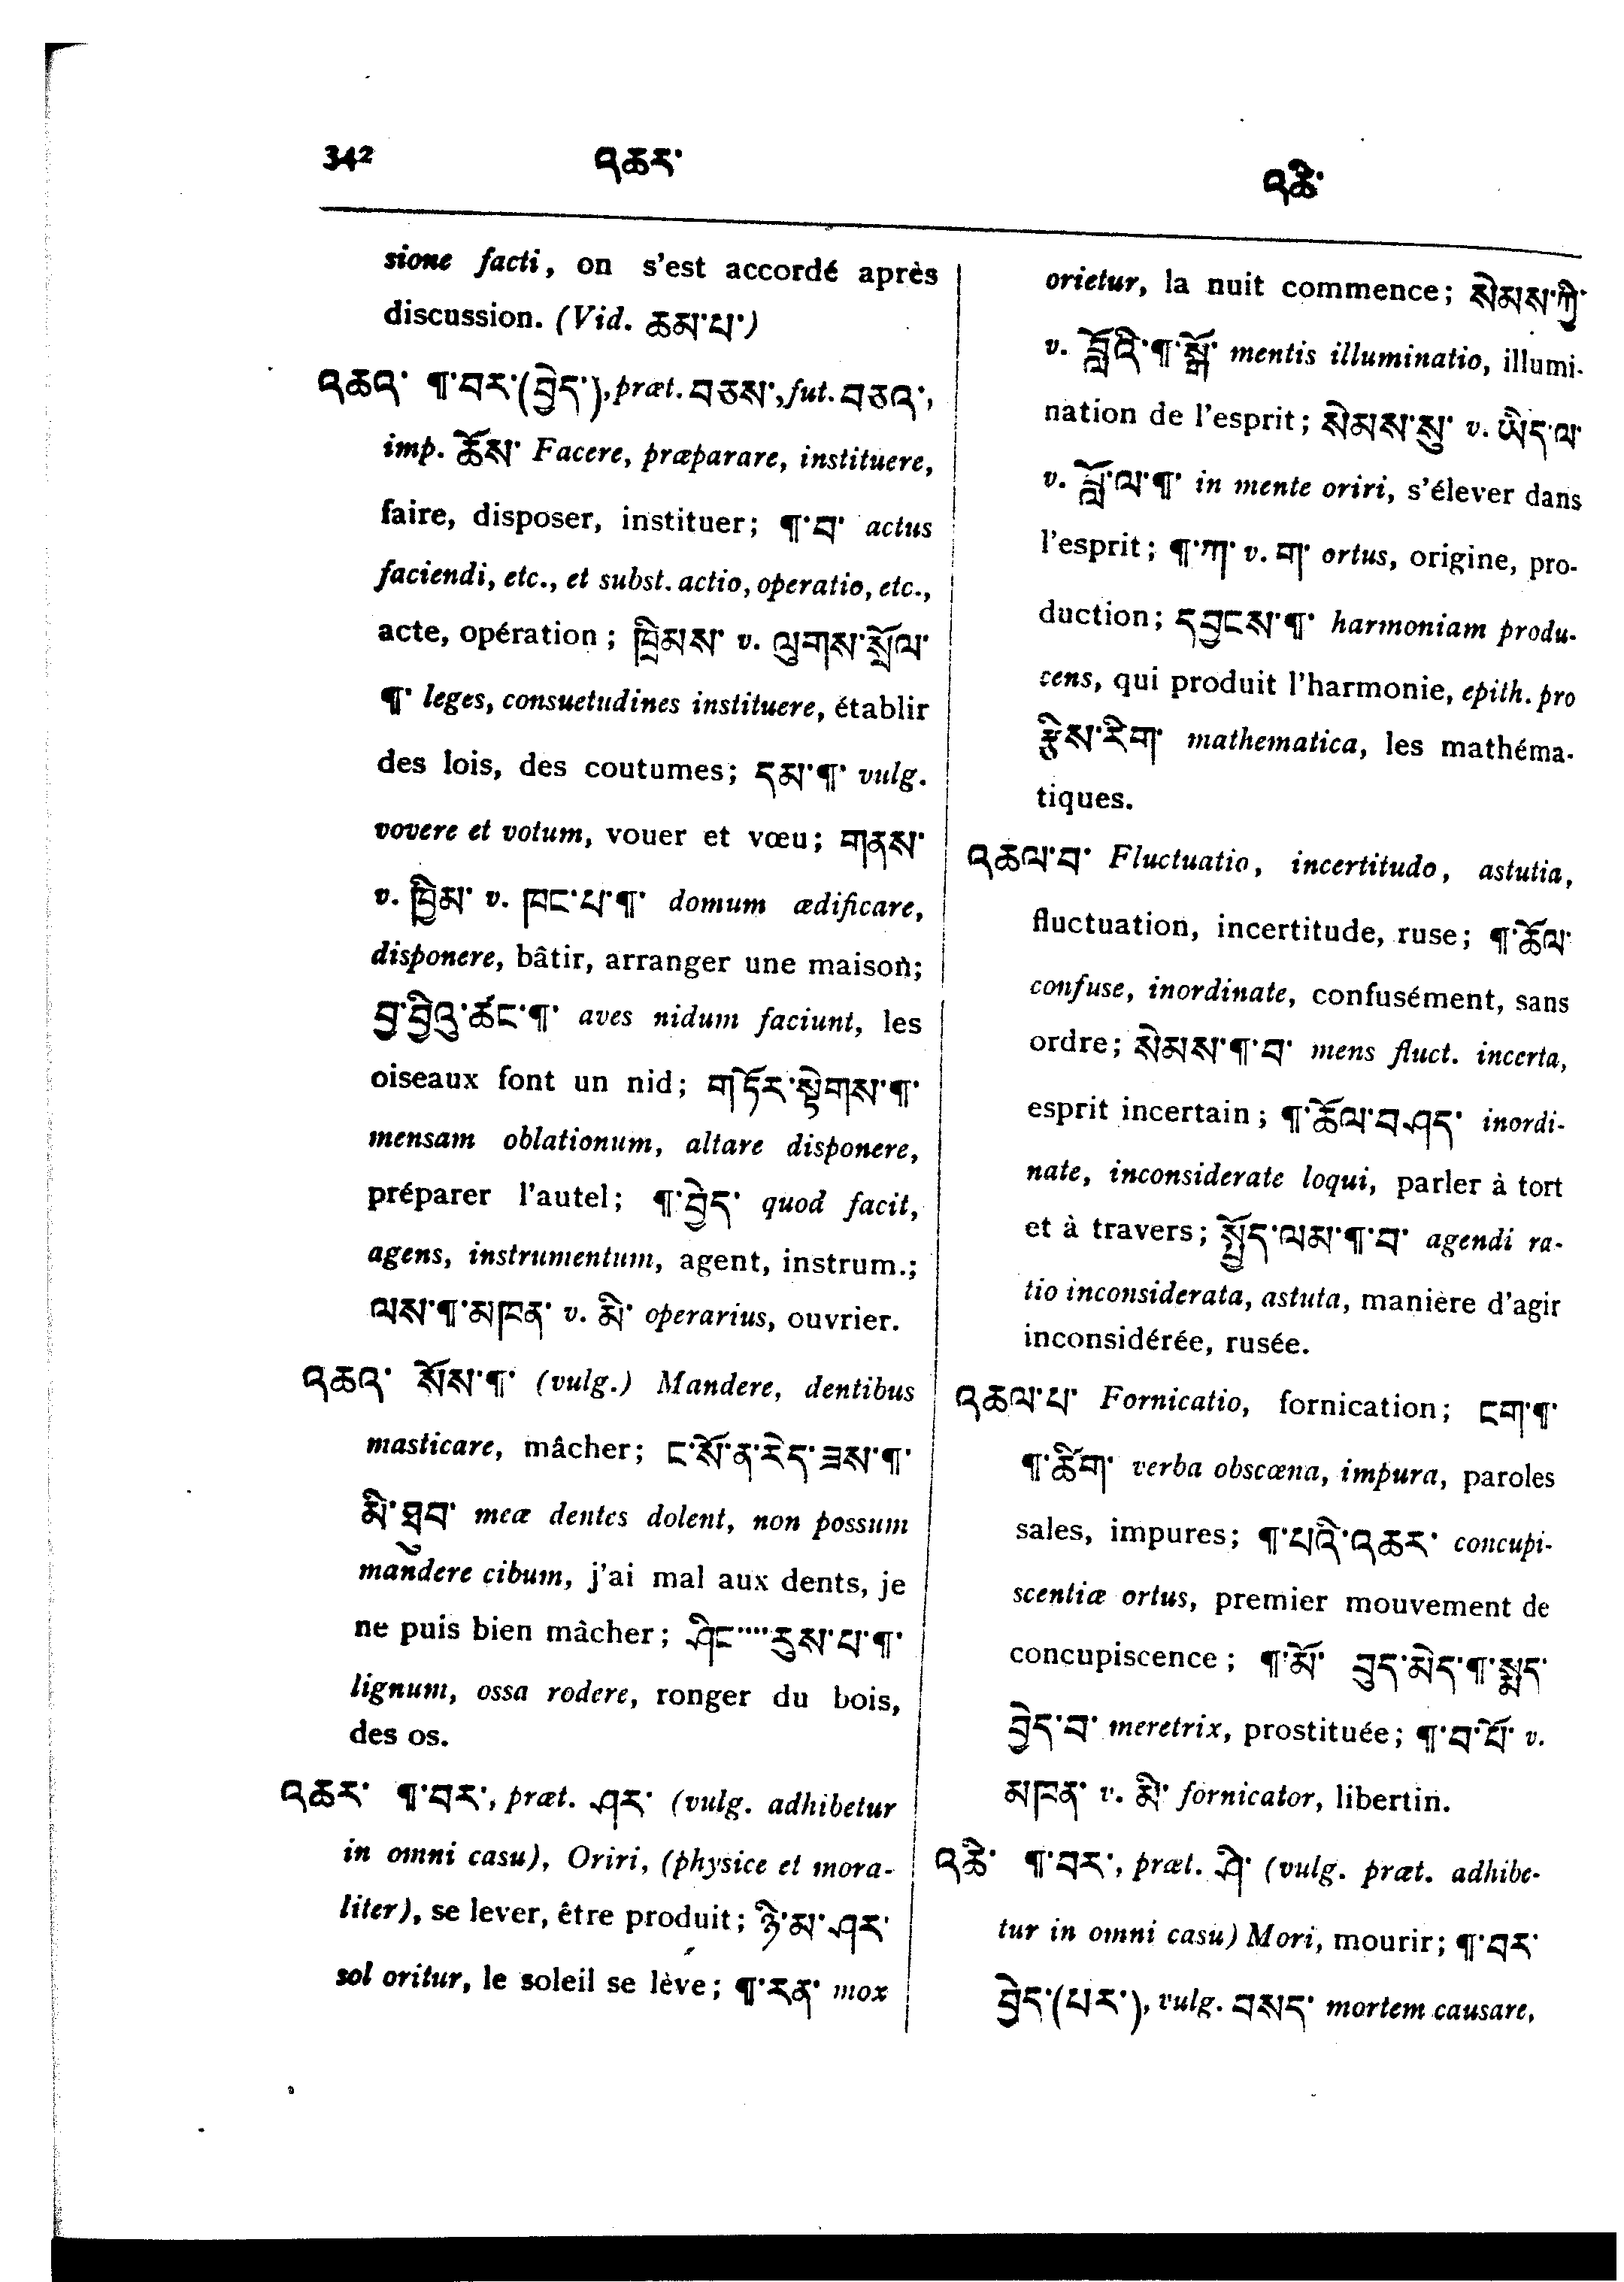 342 འཆར་ འཆི་
sione facti, on s'est accordé après
discussion. (Vid. ཆམ་པ་)
འཆའ་ ¶་བར་(བྱེད་), præt. བཅས་, fut. བཅའ་,
imp. ཆོས་ Facere, præparare, instituere,
faire, disposer, instituer; ¶་བ་ actus
faciendi, etc., et subst. actio, operatio, etc.,
acte, opération; ཁྲིམས་ v. ལུགས་སྲོལ་
¶་ leges, consuetudines instituere, établir
des lois, des coutumes; དམ་¶་ vulg.
vovere et votum, vouer et vœu; གནས་
v. ཁྱིམ་ v. ཁང་པ་¶་ domum ædificare,
disponere, bâtir, arranger une maison;
བྱ་བྱིའུ་ཚང་¶་ aves nidum faciunt, les
oiseaux font un nid; གཏོར་སྟེགས་¶་
mensam oblationum, altare disponere,
préparer l'autel; ¶་བྱེད་ quod facit,
agens, instrumentum, agent, instrum.;
ལས་¶་མཁན་ v. མི་ operarius, ouvrier.
འཆའ་ སོས་¶་ (vulg.) Mandere, dentibus
masticare, mâcher; ང་སོ་ན་རེད་ཟས་¶་
མི་ཐུབ་ meæ dentes dolent, non possum
mandere cibum, j'ai mal aux dents, je
ne puis bien mâcher; ཤིང་····རུས་པ་¶་
lignum, ossa rodere, ronger du bois,
des os.
འཆར་ ¶་བར་, præt. ཤར་ (vulg. adhibetur
in omni casu), Oriri, (physice et mora-
liter), se lever, être produit; ཉི་མ་ཤར་
sol oritur, le soleil se lève; ¶་རན་ mox
orietur, la nuit commence; སེམས་ཀྱི་
v. བློའི་¶་སྒོ་ mentis illuminatio, illumi-
nation de l'esprit; སེམས་སུ་ v. ཡིད་ལ་
v. བློ་ལ་¶་ in mente oriri, s'élever dans
l'esprit; ¶་ཀ་ v. ག་ ortus, origine, pro-
duction; དབྱངས་¶་ harmoniam produ-
cens, qui produit l'harmonie, epith. pro
རྩིས་རིག་ mathematica, les mathéma-
tiques.
འཆལ་བ་ Fluctuatio, incertitudo, astutia,
fluctuation, incertitude, ruse; ¶་ཆོལ་
confuse, inordinate, confusément, sans
ordre; སེམས་¶་བ་ mens fluct. incerta,
esprit incertain; ¶་ཆོལ་བ་ཤད་ inordi-
nate, inconsiderate loqui, parler à tort
et à travers; སྤྱོད་ལམ་¶་བ་ agendi ra-
tio inconsiderata, astuta, manière d'agir
inconsidérée, rusée.
འཆལ་པ་ Fornicatio, fornication; ངག་¶་
¶་ཚིག་ verba obscœna, impura, paroles
sales, impures; ¶་པའི་འཆར་ concupi-
scentiæ ortus, premier mouvement de
concupiscence; ¶་མོ་ བུད་མེད་¶་སྨད་
བྱེད་བ་ meretrix, prostituée; ¶་བ་པོ་ v.
མཁན་ v. མི་ fornicator, libertin.
འཆི་ ¶་བར་, præt. ཤི་ (vulg. præt. adhibe-
tur in omni casu) Mori, mourir; ¶་བར་
བྱེད་(པར་), vulg. བསད་ mortem causare,